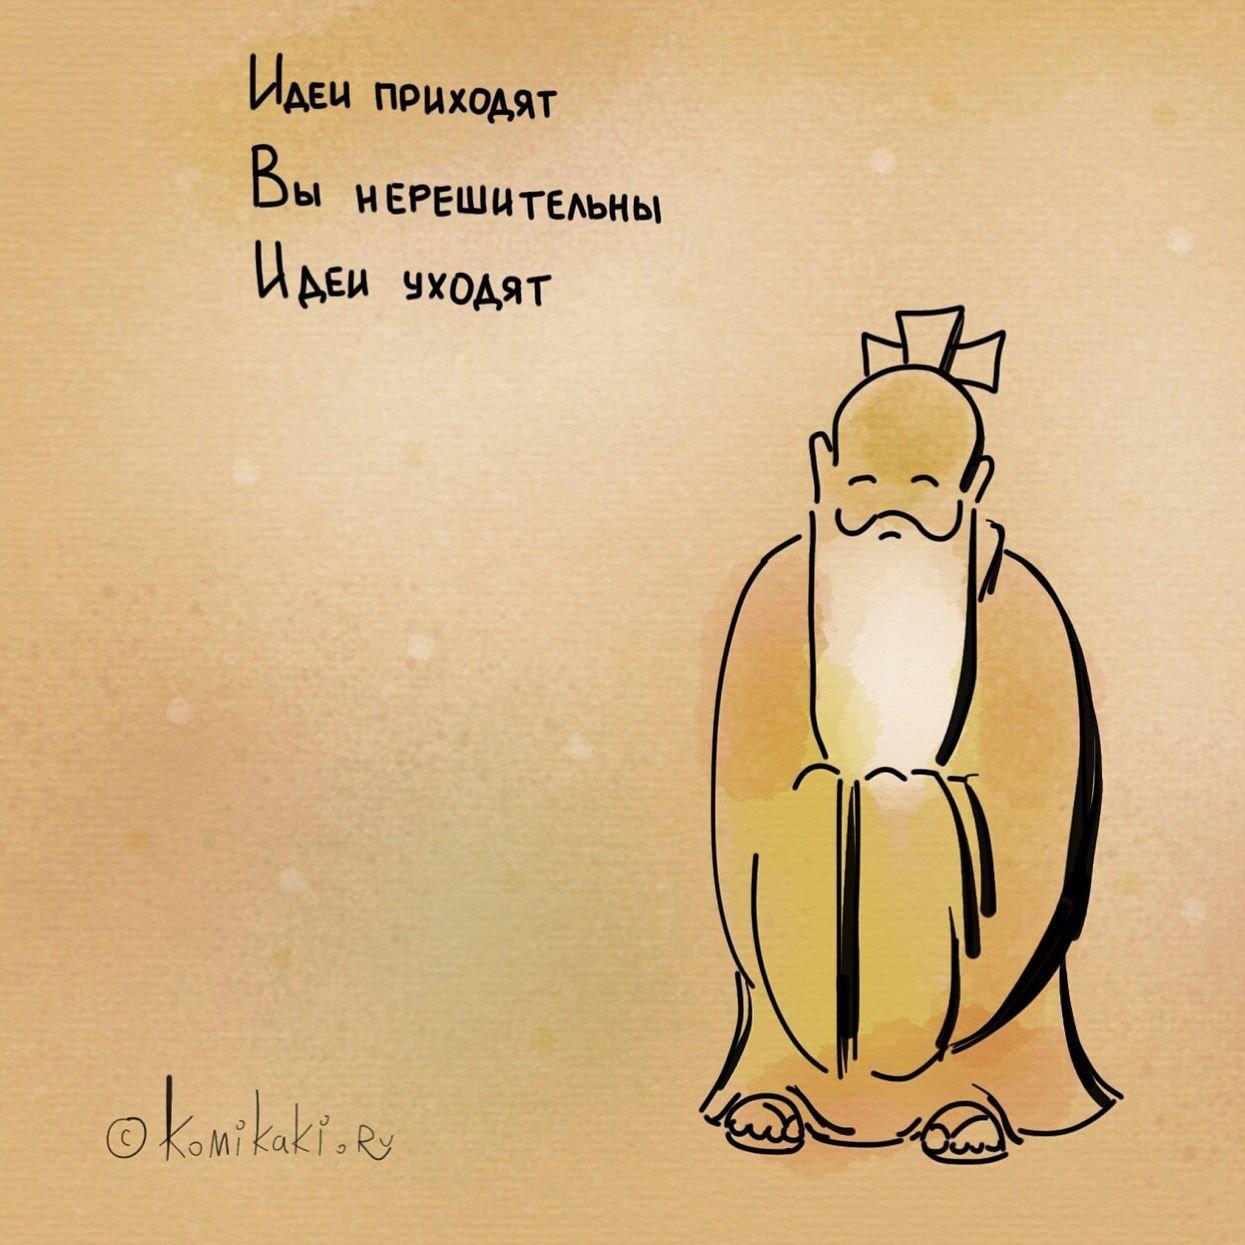 Идеи приходят
Вы нерешительны
Идеи уходят
© Komikaki.Ru